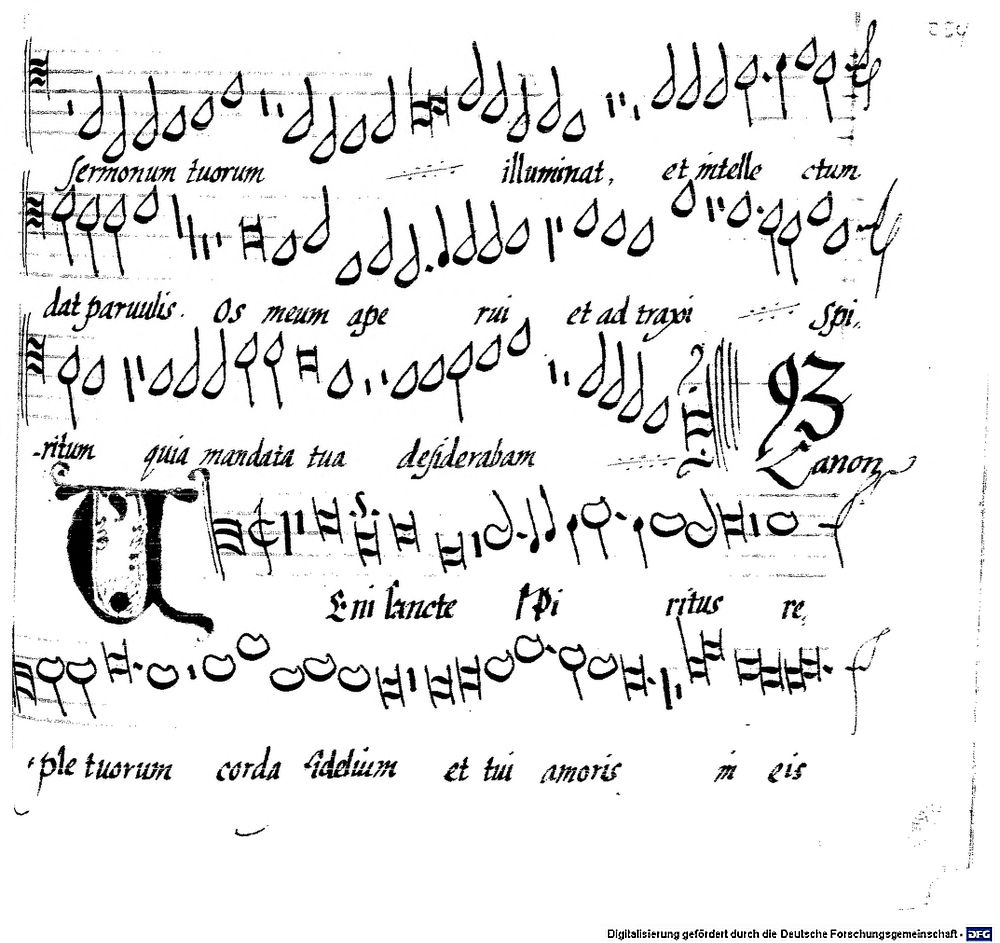 sermonum tuorum illuminat, et intelle ctum
dat paruulis. Os meum ape rui et ad traxi Spi,
-ritum quia mandata tua desiderabam
Canon
VEni sancte Spi ritus re,
ple tuorum corda fidelium et tui amoris in eis
Digitalisierung gefördert durch die Deutsche Forschungsgemeinschaft - DFG